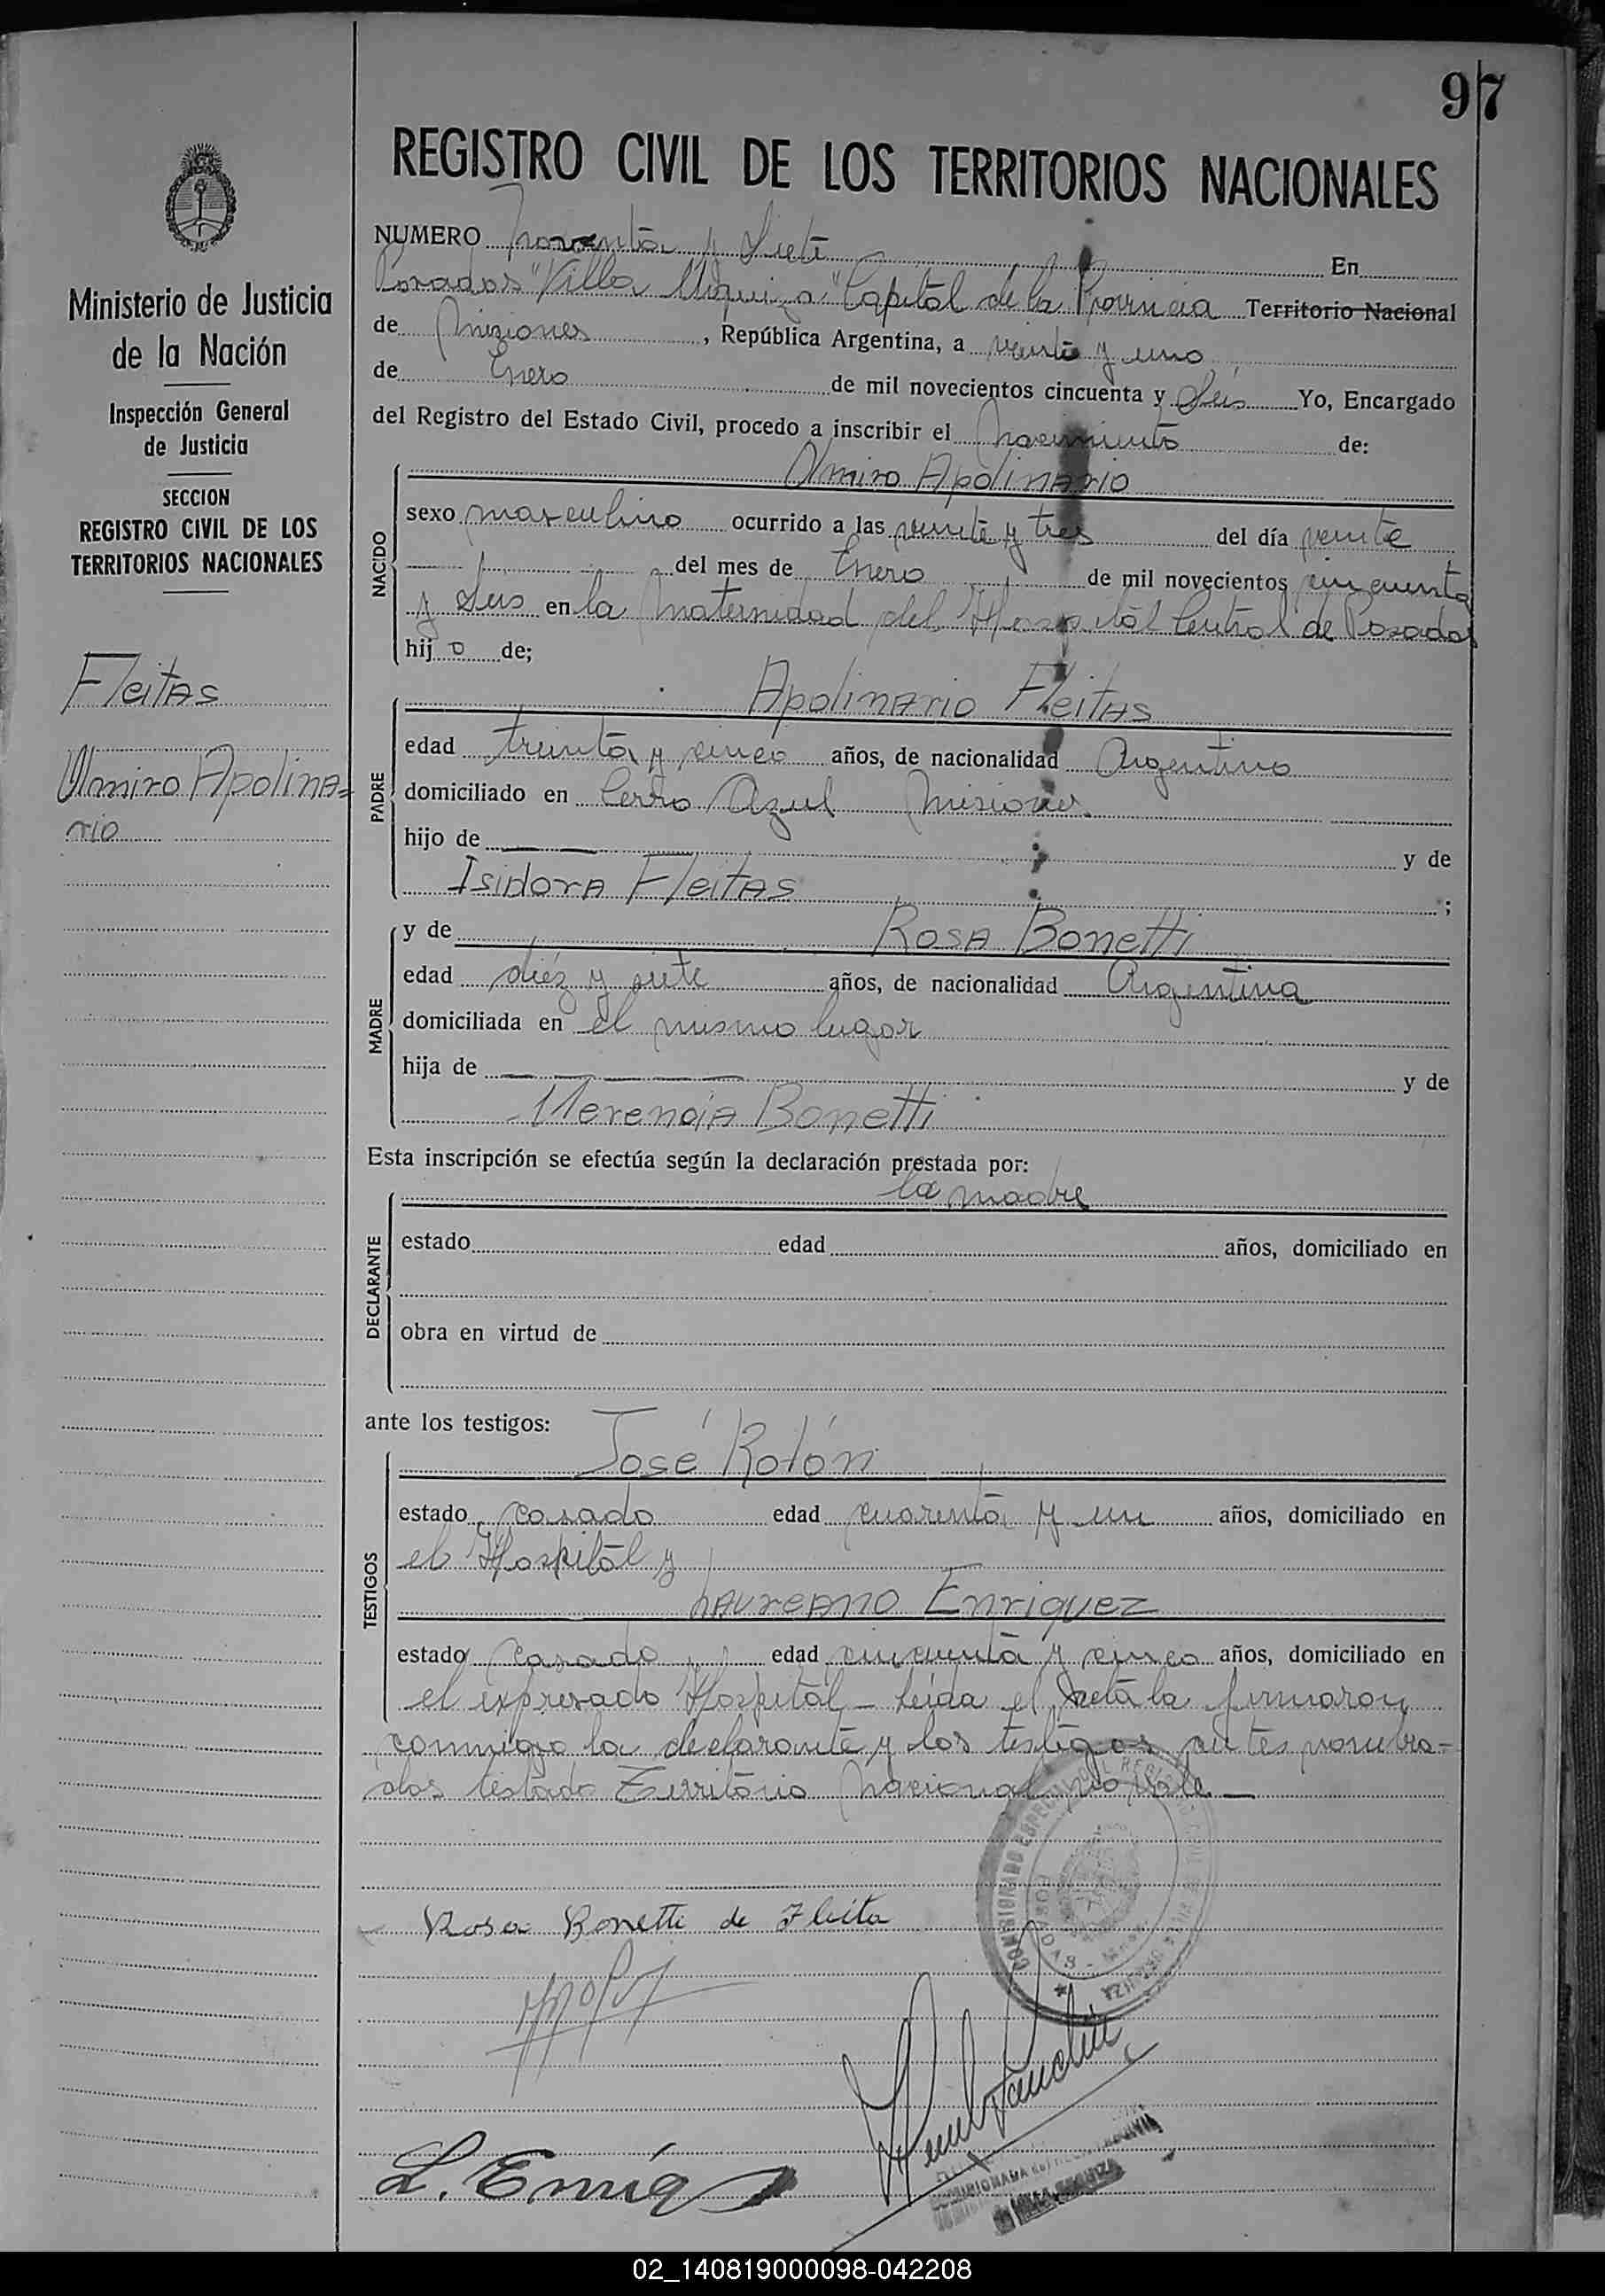 97
REGISTRO CIVIL DE LOS TERRITORIOS NACIONALES
Ministerio de Justicia
de la Nación
Inspección General
de Justicia
SECCION
REGISTRO CIVIL DE LOS
TERRITORIOS NACIONALES
Fleitas
Olmiro Apolina=
rio
NUMERO Noventa y Siete En
Posadas "Villa Urquiza" Capital de la Provincia Territorio Nacional
de Misiones, República Argentina, a veinte y uno
de Enero de mil novecientos cincuenta y Seis Yo, Encargado
del Registro del Estado Civil, procedo a inscribir el nacimiento de:
NACIDO
Olmiro Apolinario
sexo masculino ocurrido a las veinte y tres del día veinte
del mes de Enero de mil novecientos cincuenta
y Seis en la Maternidad del Hospital Central de Posadas
hijo de;
PADRE
Apolinario Fleitas
edad treinta y cinco años, de nacionalidad Argentino
domiciliado en Cerro Azul Misiones
hijo de — — y de
Isidora Fleitas ;
MADRE
y de Rosa Bonetti
edad diéz y siete años, de nacionalidad Argentina
domiciliada en el mismo lugar
hija de — — — — y de
Merencia Bonetti
Esta inscripción se efectúa según la declaración prestada por:
DECLARANTE
la madre
estado edad años, domiciliado en
obra en virtud de
ante los testigos:
TESTIGOS
José Rolón
estado casado edad cuarenta y un años, domiciliado en
el Hospital y
Laureano Enriquez
estado casado edad cincuenta y cinco años, domiciliado en
el expresado Hospital — Leída el Acta la firmaron
conmigo la declarante y los testigos antes nombra-
dos testado Territorio Nacional no vale —
COMISIONADO ESPECIAL DEL REGISTRO CIVIL DE VILLA URQUIZA
POSADAS
Rosa Bonetti de Fleita
L. Enriq
02_140819000098-042208